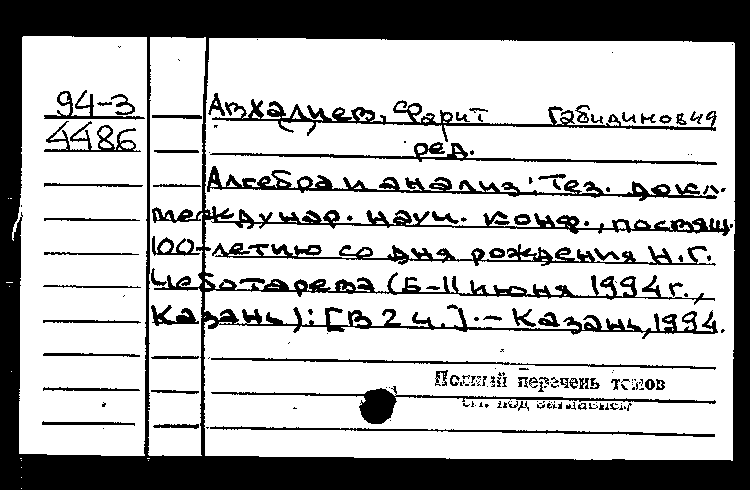 94-3
4486
Авхалиев, Фарит Габидинович
ред.
Алгебра и анализ: Тез. докл.
междунар. науч. конф., посвящ.
100-летию со дня рождения Н.Г.
Чеботарева (5-11 июня 1994 г.,
Казань): [В 2 ч.]. - Казань, 1994.
Полный перечень томов
см. под заглавием